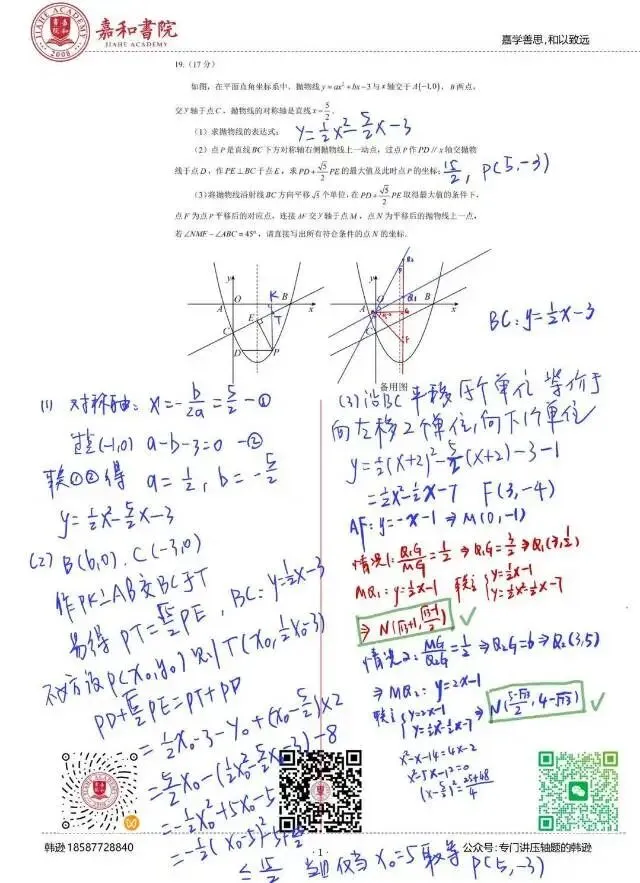 JIAHE ACADEMY
2008
嘉和書院
JIAHE ACADEMY
嘉学善思,和以致远
19.(17 分)
如图,在平面直角坐标系中,抛物线 y=ax²+bx-3 与 x 轴交于 A(-1,0),B 两点,
交 y 轴于点 C,抛物线的对称轴是直线 x=5/2.
(1)求抛物线的表达式; y=½x²-5/2x-3
(2)点 P 是直线 BC 下方对称轴右侧抛物线上一动点,过点 P 作 PD∥x 轴交抛物
线于点 D,作 PE⊥BC 于点 E,求 PD+√5/2 PE 的最大值及此时点 P 的坐标; 15/2, P(5,-3)
(3)将抛物线沿射线 BC 方向平移 √5 个单位,在 PD+√5/2 PE 取得最大值的条件下,
点 F 为点 P 平移后的对应点,连接 AF 交 y 轴于点 M,点 N 为平移后的抛物线上一点,
若∠NMF-∠ABC=45°,请直接写出所有符合条件的点 N 的坐标.
y
A O K B x
E T
C
D P
y
Q₂
A O Q₁ B x
G
C
F
备用图
BC: y=½x-3
(1) 对称轴: x=-b/2a=5/2 —①
过点(-1,0) a-b-3=0 —②
联①②得 a=½, b=-5/2
y=½x²-5/2x-3
(2) B(6,0). C(-3,0)
作PK⊥AB交BC于T
易得 PT=√5/2PE, BC: y=½x-3
不妨设P(x₀,y₀) 则T(x₀,½x₀-3)
PD+√5/2PE=PT+PD
=½x₀-3-y₀+(x₀-5/2)×2
=5/2x₀-(½x₀²-5/2x₀-3)-8
=-½x₀²+5x₀-5
=-½(x₀-5)²-5+25/2
≤15/2 当且仅当x₀=5取等 P(5,-3)
(3)沿BC平移√5个单位等价于
向左移2个单位,向下1个单位
y=½(x+2)²-5/2(x+2)-3-1
=½x²-½x-7 F(3,-4)
AF: y=-x-1 ⇒ M(0,-1)
情况1: Q₁G/MG=½ ⇒ Q₁G=3/2 ⇒ Q₁(3,½)
MQ₁: y=½x-1 联立{y=½x-1
y=½x²-½x-7
⇒ N(√13+1, √13-1/2) ✓
情况2: MG/Q₂G=½ ⇒ Q₂G=6 ⇒ Q₂(3,5)
⇒ MQ₂: y=2x-1
联立{y=2x-1
y=½x²-½x-7 ⇒ N(5-√73/2, 4-√73) ✓
x²-x-14=4x-2
x²-5x-12=0
(x-5/2)²=25+48/4
韩逊 18587728840
· 1 ·
公众号: 专门讲压轴题的韩逊